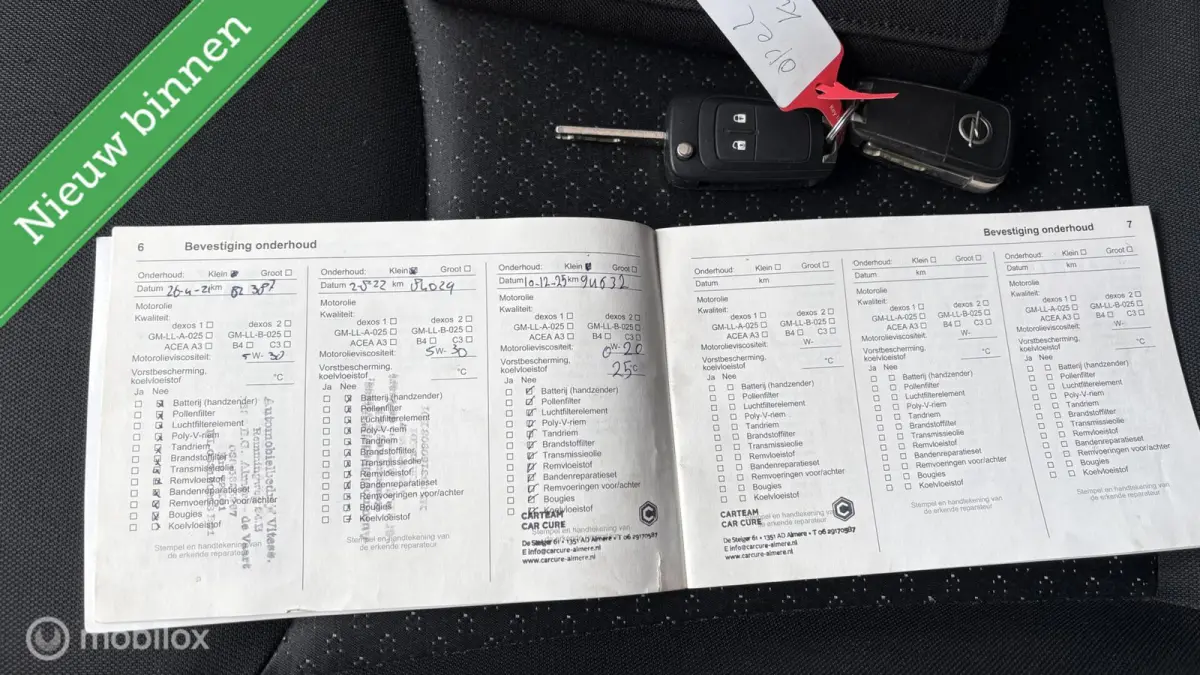 Nieuw binnen
opel
6 Bevestiging onderhoud
Onderhoud: Klein Groot
Datum 26-4-21 km 82 387
Motorolie
Kwaliteit:
dexos 1 dexos 2
GM-LL-A-025 GM-LL-B-025
ACEA A3 B4 C3
Motorolieviscositeit: 5 W- 30
Vorstbescherming,
koelvloeistof °C
Ja Nee
Batterij (handzender)
Pollenfilter
Luchtfilterelement
Poly-V-riem
Tandriem
Brandstoffilter
Transmissieolie
Remvloeistof
Bandenreparatieset
Remvoeringen voor/achter
Bougies
Koelvloeistof
Stempel en handtekening van
de erkende reparateur
Onderhoud: Klein Groot
Datum 2-5-22 km 84029
Motorolie
Kwaliteit:
dexos 1 dexos 2
GM-LL-A-025 GM-LL-B-025
ACEA A3 B4 C3
Motorolieviscositeit: 5 W- 30
Vorstbescherming,
koelvloeistof °C
Ja Nee
Batterij (handzender)
Pollenfilter
Luchtfilterelement
Poly-V-riem
Tandriem
Brandstoffilter
Transmissieolie
Remvloeistof
Bandenreparatieset
Remvoeringen voor/achter
Bougies
Koelvloeistof
Stempel en handtekening van
de erkende reparateur
Onderhoud: Klein Groot
Datum 10-12-25 km 94632
Motorolie
Kwaliteit:
dexos 1 dexos 2
GM-LL-A-025 GM-LL-B-025
ACEA A3 B4 C3
Motorolieviscositeit: 0 W- 20
Vorstbescherming,
koelvloeistof 25 °C
Ja Nee
Batterij (handzender)
Pollenfilter
Luchtfilterelement
Poly-V-riem
Tandriem
Brandstoffilter
Transmissieolie
Remvloeistof
Bandenreparatieset
Remvoeringen voor/achter
Bougies
Koelvloeistof
CARTEAM
CAR CURE
Stempel en handtekening van
de erkende reparateur
De Steiger 61 • 1351 AD Almere • T 06 29170587
E info@carcure-almere.nl
www.carcure-almere.nl
Bevestiging onderhoud 7
Onderhoud: Klein Groot
Datum km
Motorolie
Kwaliteit:
dexos 1 dexos 2
GM-LL-A-025 GM-LL-B-025
ACEA A3 B4 C3
Motorolieviscositeit: W-
Vorstbescherming,
koelvloeistof °C
Ja Nee
Batterij (handzender)
Pollenfilter
Luchtfilterelement
Poly-V-riem
Tandriem
Brandstoffilter
Transmissieolie
Remvloeistof
Bandenreparatieset
Remvoeringen voor/achter
Bougies
Koelvloeistof
CARTEAM
CAR CURE
Stempel en handtekening van
de erkende reparateur
De Steiger 61 • 1351 AD Almere • T 06 29170587
E info@carcure-almere.nl
www.carcure-almere.nl
Onderhoud: Klein Groot
Datum km
Motorolie
Kwaliteit:
dexos 1 dexos 2
GM-LL-A-025 GM-LL-B-025
ACEA A3 B4 C3
Motorolieviscositeit: W-
Vorstbescherming,
koelvloeistof °C
Ja Nee
Batterij (handzender)
Pollenfilter
Luchtfilterelement
Poly-V-riem
Tandriem
Brandstoffilter
Transmissieolie
Remvloeistof
Bandenreparatieset
Remvoeringen voor/achter
Bougies
Koelvloeistof
Stempel en handtekening van
de erkende reparateur
Onderhoud: Klein Groot
Datum km
Motorolie
Kwaliteit:
dexos 1 dexos 2
GM-LL-A-025 GM-LL-B-025
ACEA A3 B4 C3
Motorolieviscositeit: W-
Vorstbescherming,
koelvloeistof °C
Ja Nee
Batterij (handzender)
Pollenfilter
Luchtfilterelement
Poly-V-riem
Tandriem
Brandstoffilter
Transmissieolie
Remvloeistof
Bandenreparatieset
Remvoeringen voor/achter
Bougies
Koelvloeistof
Stempel en handtekening van
de erkende reparateur
mobilox